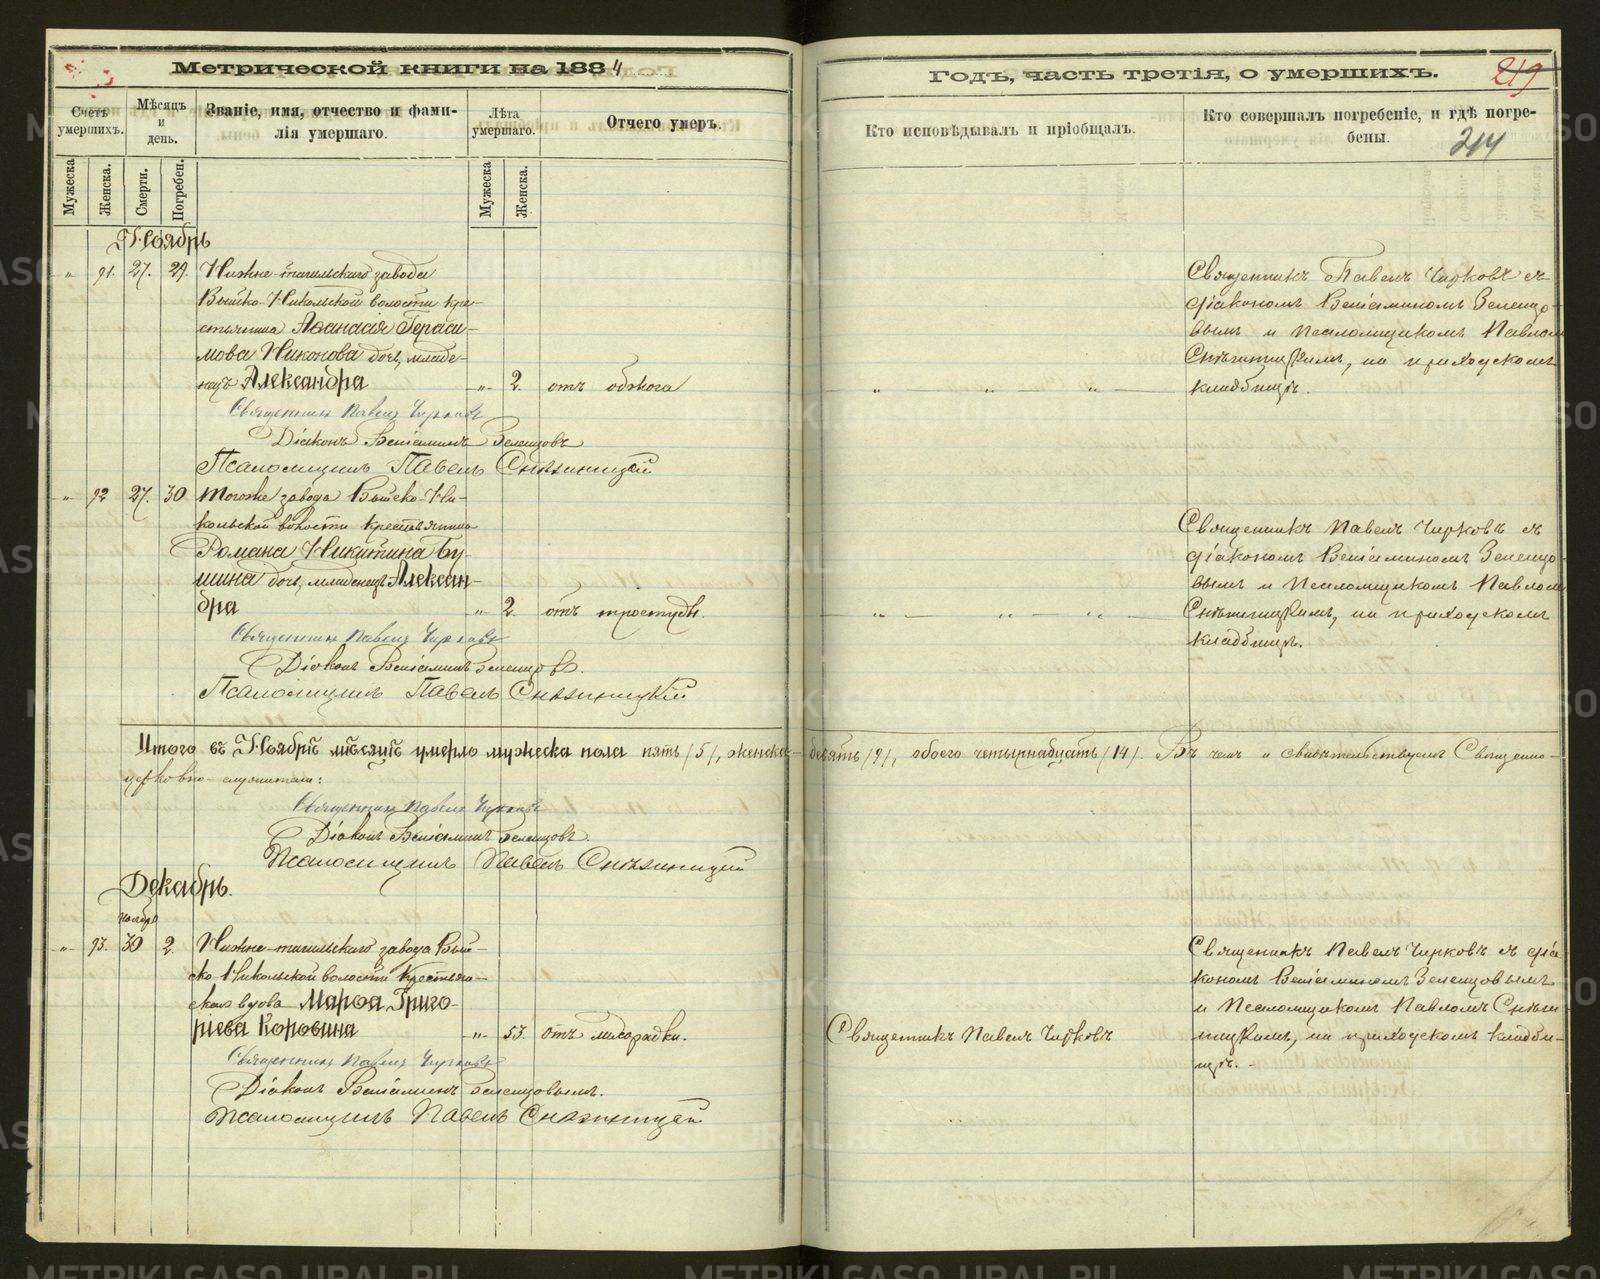 Метрической книги на 1884
Годъ, часть третія, о умершихъ.
219
214
Счетъ умершихъ.
Мѣсяцъ и день.
Званіе, имя, отчество и фами-
лія умершаго.
Лѣта умершаго.
Отчего умеръ.
Кто исповѣдывалъ и пріобщалъ.
Кто совершалъ погребеніе, и гдѣ погре-
бены.
Мужеска
Женска.
Смерти.
Погребен.
Мужеска
Женска.
Ноябрь
" 91. 27. 29. Нижне-тагильскаго завода
Выйско-Никольской волости кре-
стьянина Афанасія Гераси-
мова Никонова дочь, младе-
нецъ Александра " 2. отъ обжога " " "
Священникъ Павелъ Чирковъ съ
діакономъ Веніаминомъ Зеленцо-
вымъ и псаломщикомъ Павлом
Снѣжницкимъ, на приходскомъ
кладбищѣ.
Священникъ Павелъ Чирковъ
Діаконъ Веніаминъ Зеленцовъ
Псаломщикъ Павелъ Снѣжницкій
" 92 27. 30 Тогоже завода Выйско-Ни-
кольской волости крестьянина
Романа Никитина Бу-
шина дочь, младенецъ Алексан-
дра " 2. отъ простуды. " " "
Священникъ Павелъ Чирковъ съ
діакономъ Веніаминомъ Зеленцо-
вымъ и псаломщикомъ Павлом
Снѣжницкимъ, на приходскомъ
кладбищѣ.
Священникъ Павелъ Чирковъ
Діаконъ Веніаминъ Зеленцовъ.
Псаломщикъ Павелъ Снѣжницкій
Итого въ Ноябрѣ мѣсяцѣ умерло мужеска пола пять /5/, женска – девять /9/, обоего четырнадцать /14/. Въ чемъ и свидѣтельствуемъ Священно-
церковно-служители:
Священникъ Павелъ Чирковъ
Діаконъ Веніаминъ Зеленцовъ
Псаломщикъ Павелъ Снѣжницкій
Декабрь.
ноябр.
" 93. 30 2. Нижне-тагильскаго завода Вый-
ско Никольской волости крестьян-
ская вдова Марфа Григо-
рьева Коровина " 53. отъ лихорадки. Священникъ Павелъ Чирковъ
Священникъ Павелъ Чирковъ съ діа-
кономъ Веніаминомъ Зеленцовымъ
и псаломщикомъ Павломъ Снѣж-
ницкимъ, на приходскомъ кладби-
щѣ.
Священникъ Павелъ Чирковъ
Діаконъ Веніаминъ Зеленцовымъ.
Псаломщикъ Павелъ Снѣжницкій
METRIKI.GASO-URAL.RU